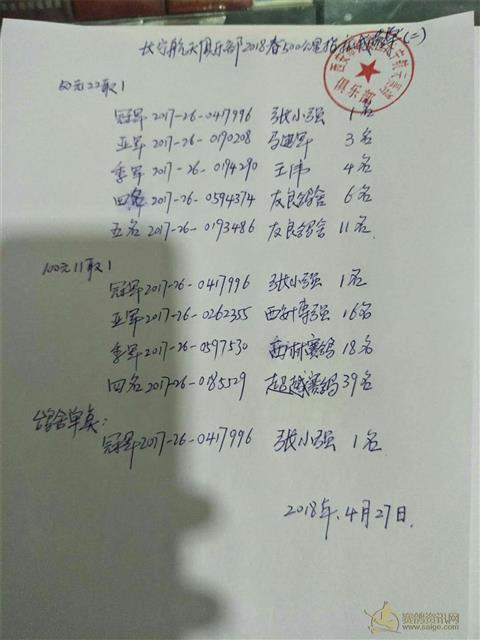 长宁航天俱乐部2018春500公里指
俱乐部
50元22取1
冠军 2017-26-0417996 张小强 1名
亚军 2017-26-0190208 马建军 3名
季军 2017-26-0194290 王伟 4名
四名 2017-26-0594374 友良鸽舍 6名
五名 2017-26-0193486 友良鸽舍 11名
100元11取1
冠军 2017-26-0417996 张小强 1名
亚军 2017-26-0262355 强 16名
季军 2017-26-0597530 西林赛鸽 18名
四名 2017-26-0185529 超越赛鸽 39名
鸽舍单关:
冠军 2017-26-0417996 张小强 1名
2018年.4月27日.
赛鸽资讯网
www.saige.com